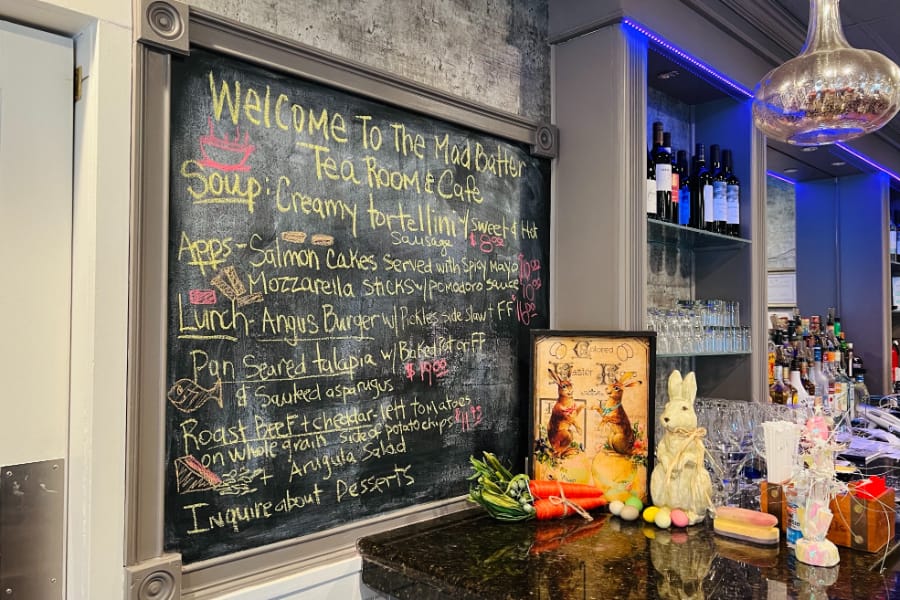 Welcome To The Mad Batter
Tea Room & Cafe
Soup: Creamy tortellini w/ sweet & Hot
Sausage $8.00
Apps- Salmon Cakes served with Spicy Mayo
Mozzarella sticks w/ pomodoro sauce
Lunch- Angus Burger w/ Pickles side slaw + FF
Pan Seared talapia w/ Baked Pot. or FF
& Sauteed asparagus $19.00
Roast Beef + cheddar- lett tomatoes
on whole grain side of potato chips
+ Arugula Salad
Inquire about Desserts
Colored